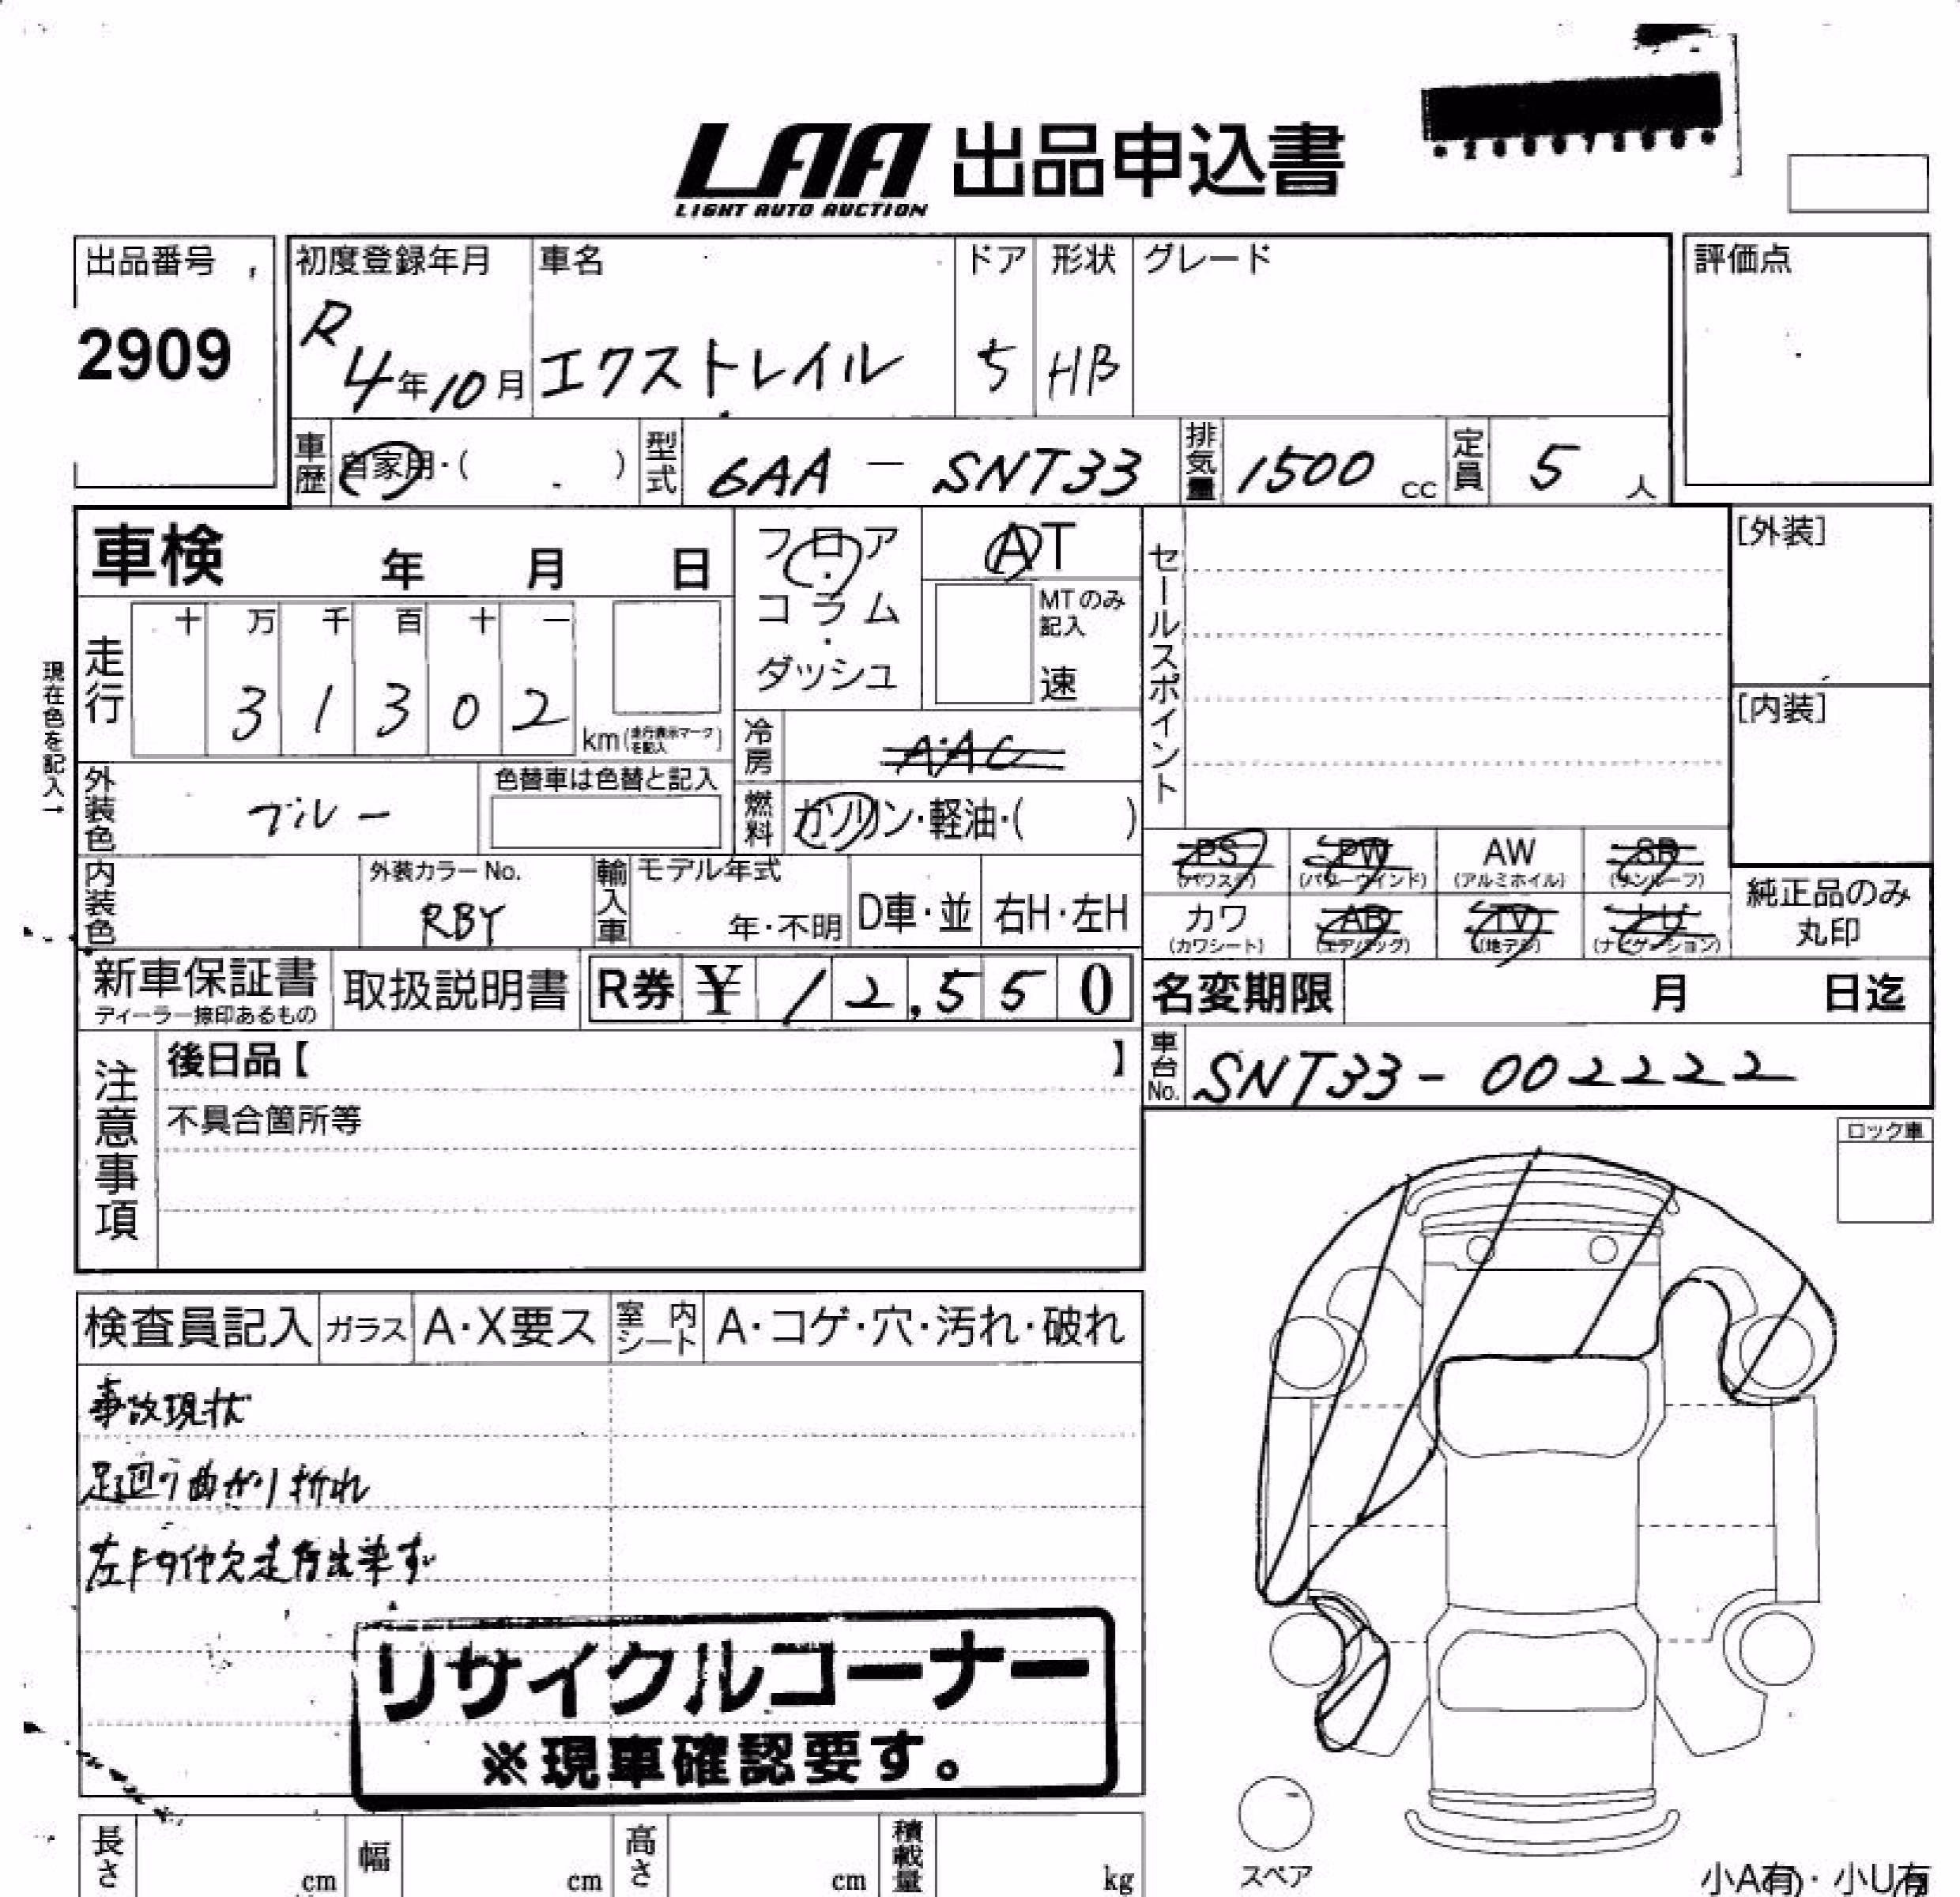 LAA 出品申込書
LIGHT AUTO AUCTION
出品番号
2909
初度登録年月
R
4年10月
車名
エクストレイル
ドア
5
形状
HB
グレード
評価点
車歴
自家用・( )
型式
6AA - SNT33
排気量
1500 cc
定員
5 人
車検 年 月 日
フロア・コラム・ダッシュ
AT
MTのみ記入
速
セールスポイント
[外装]
[内装]
現在色を記入→
走行
十 万 千 百 十 一
3 1 3 0 2
km(走行表示マークを記入)
冷房
AAC
外装色
ブルー
色替車は色替と記入
燃料
ガソリン・軽油・( )
PS
(パワステ)
PW
(パワーウインド)
AW
(アルミホイル)
SR
(サンルーフ)
カワ
(カワシート)
AB
(エアバッグ)
TV
(地デジ)
ナビ
(ナビゲーション)
純正品のみ
丸印
内装色
外装カラーNo.
RBY
輸入車
モデル年式
年・不明
D車・並
右H・左H
新車保証書
ディーラー捺印あるもの
取扱説明書
R券 ¥ 12,550
名変期限 月 日迄
車台No.
SNT33-002222
注意事項
後日品【 】
不具合箇所等
ロック車
検査員記入
ガラス
A・X要ス
室内シート
A・コゲ・穴・汚れ・破れ
事故現状
足廻り曲がり折れ
リサイクルコーナー
※現車確認要す。
長さ cm
幅 cm
高さ cm
積載量 kg
スペア
小A有・小U有